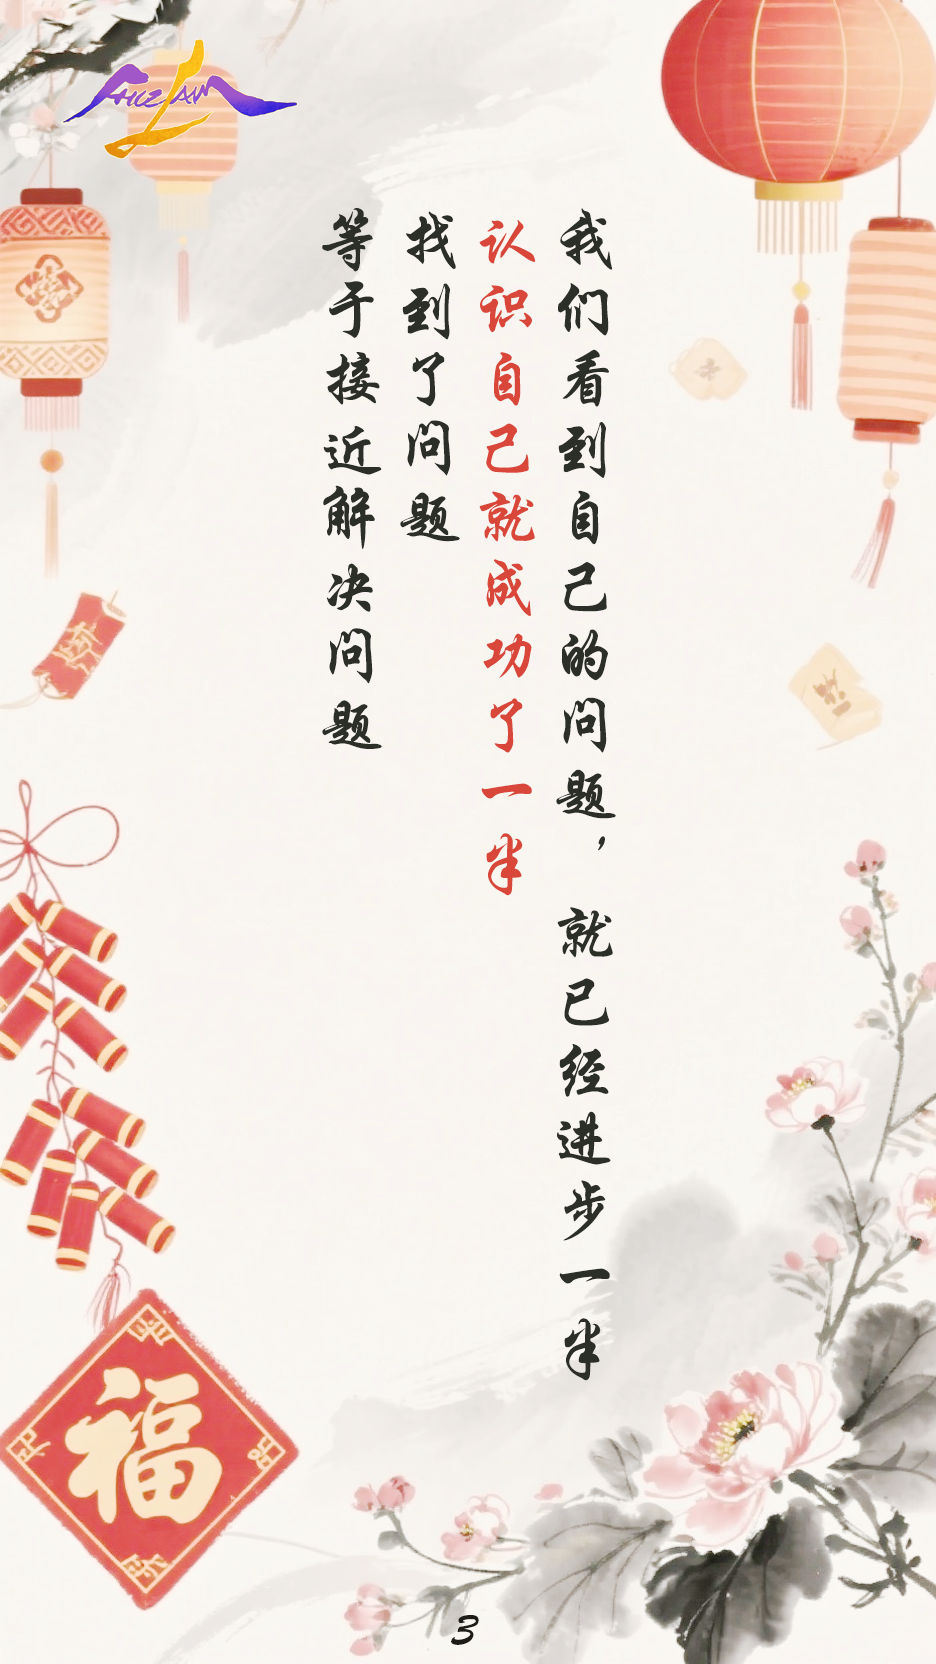 我们看到自己的问题，就已经进步一半
认识自己就成功了一半
找到了问题
等于接近解决问题
福
3